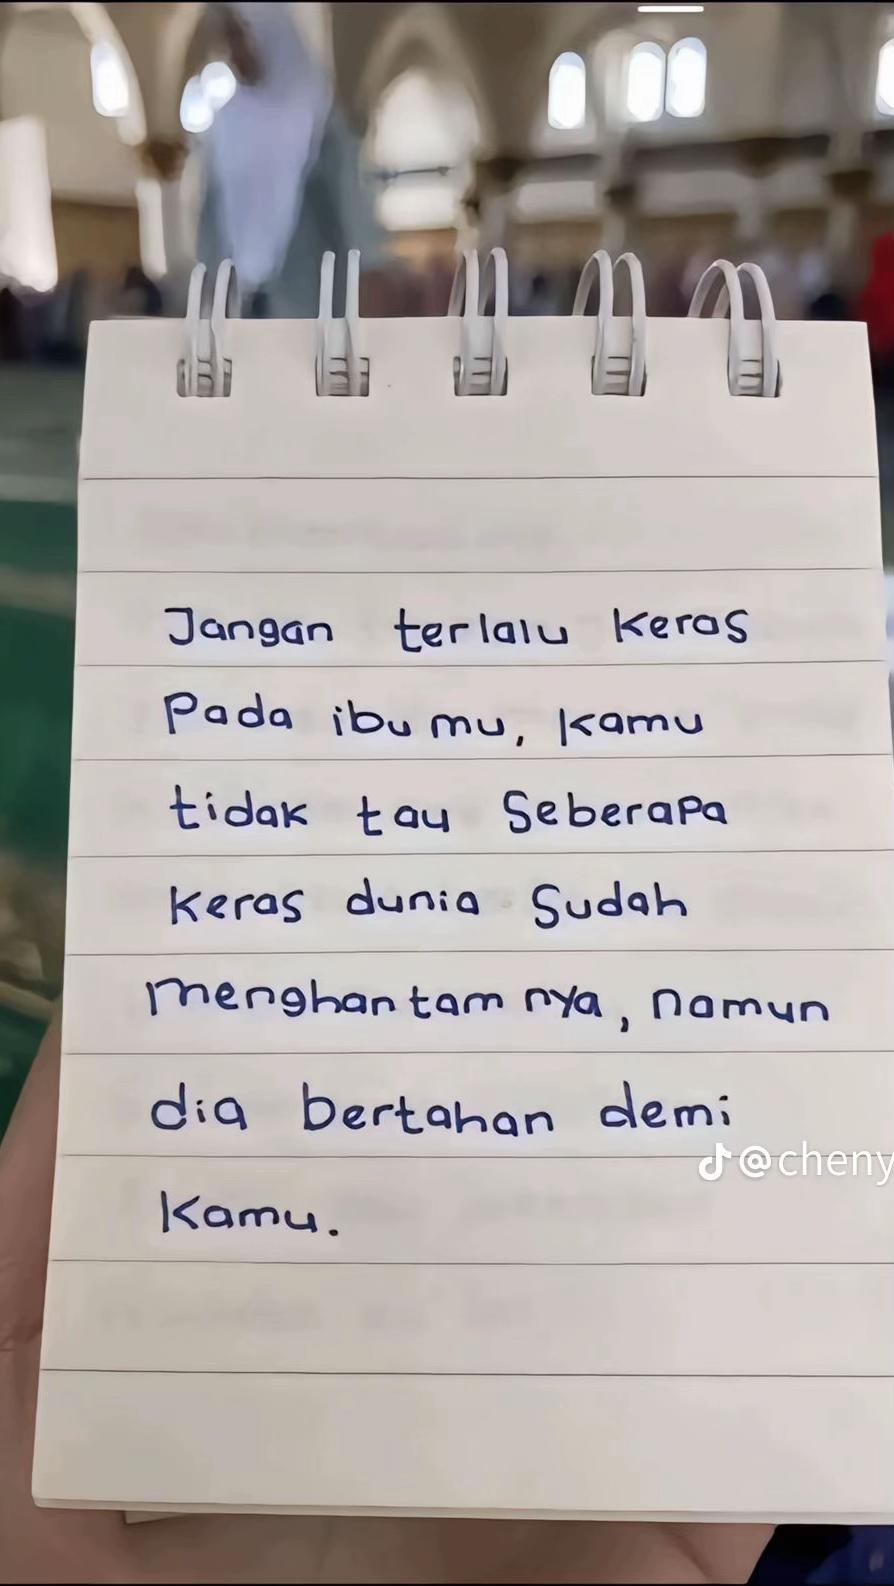 Jangan terlalu keras
Pada ibu mu, kamu
tidak tau Seberapa
keras dunia Sudah
menghantam nya, namun
dia bertahan demi
@cheny
kamu.